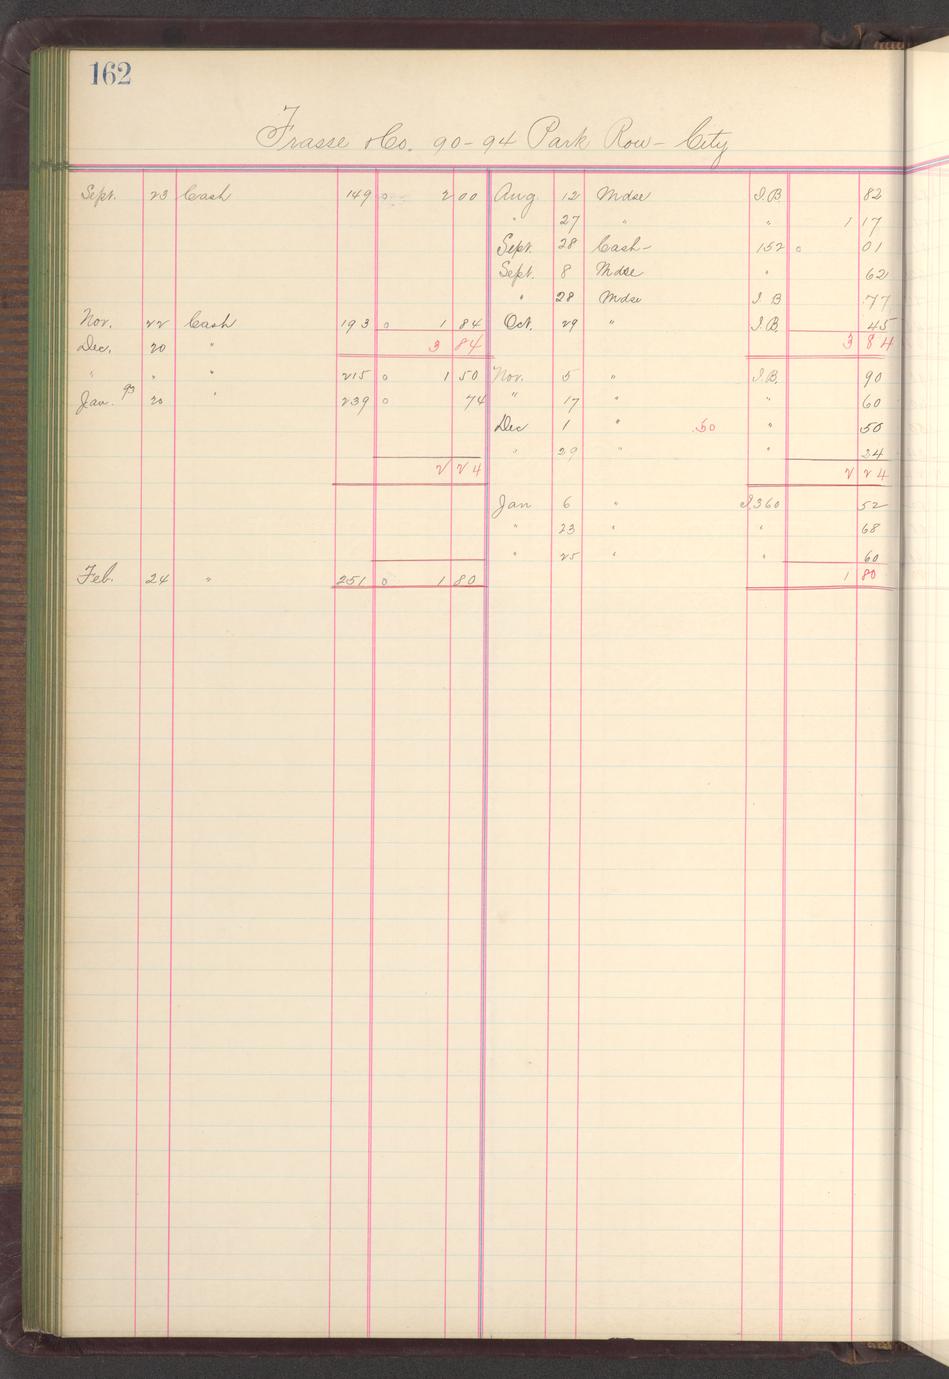 162
Frasse & Co. 90-94 Park Row- City
Sept. 23 Cash 149 0 2 00 Aug 12 Mdse I.B. 82
" 27 " " 1 17
Sept. 28 Cash- 152 0 01
Sept. 8 Mdse " 62
" 28 Mdse I B 77
Nov. 22 Cash 193 0 1 84 Oct. 29 " I B 45
Dec. 20 " 3 84 3 84
" " " 215 0 1 50 Nov. 5 " I.B. 90
Jan. 93 20 " 239 0 74 " 17 " " 60
Dec 1 " .50 " 50
" 29 " " 24
2 24 2 24
Jan 6 " I360 52
" 23 " " 68
" 25 " " 60
Feb. 24 " 251 0 1 80 1 80